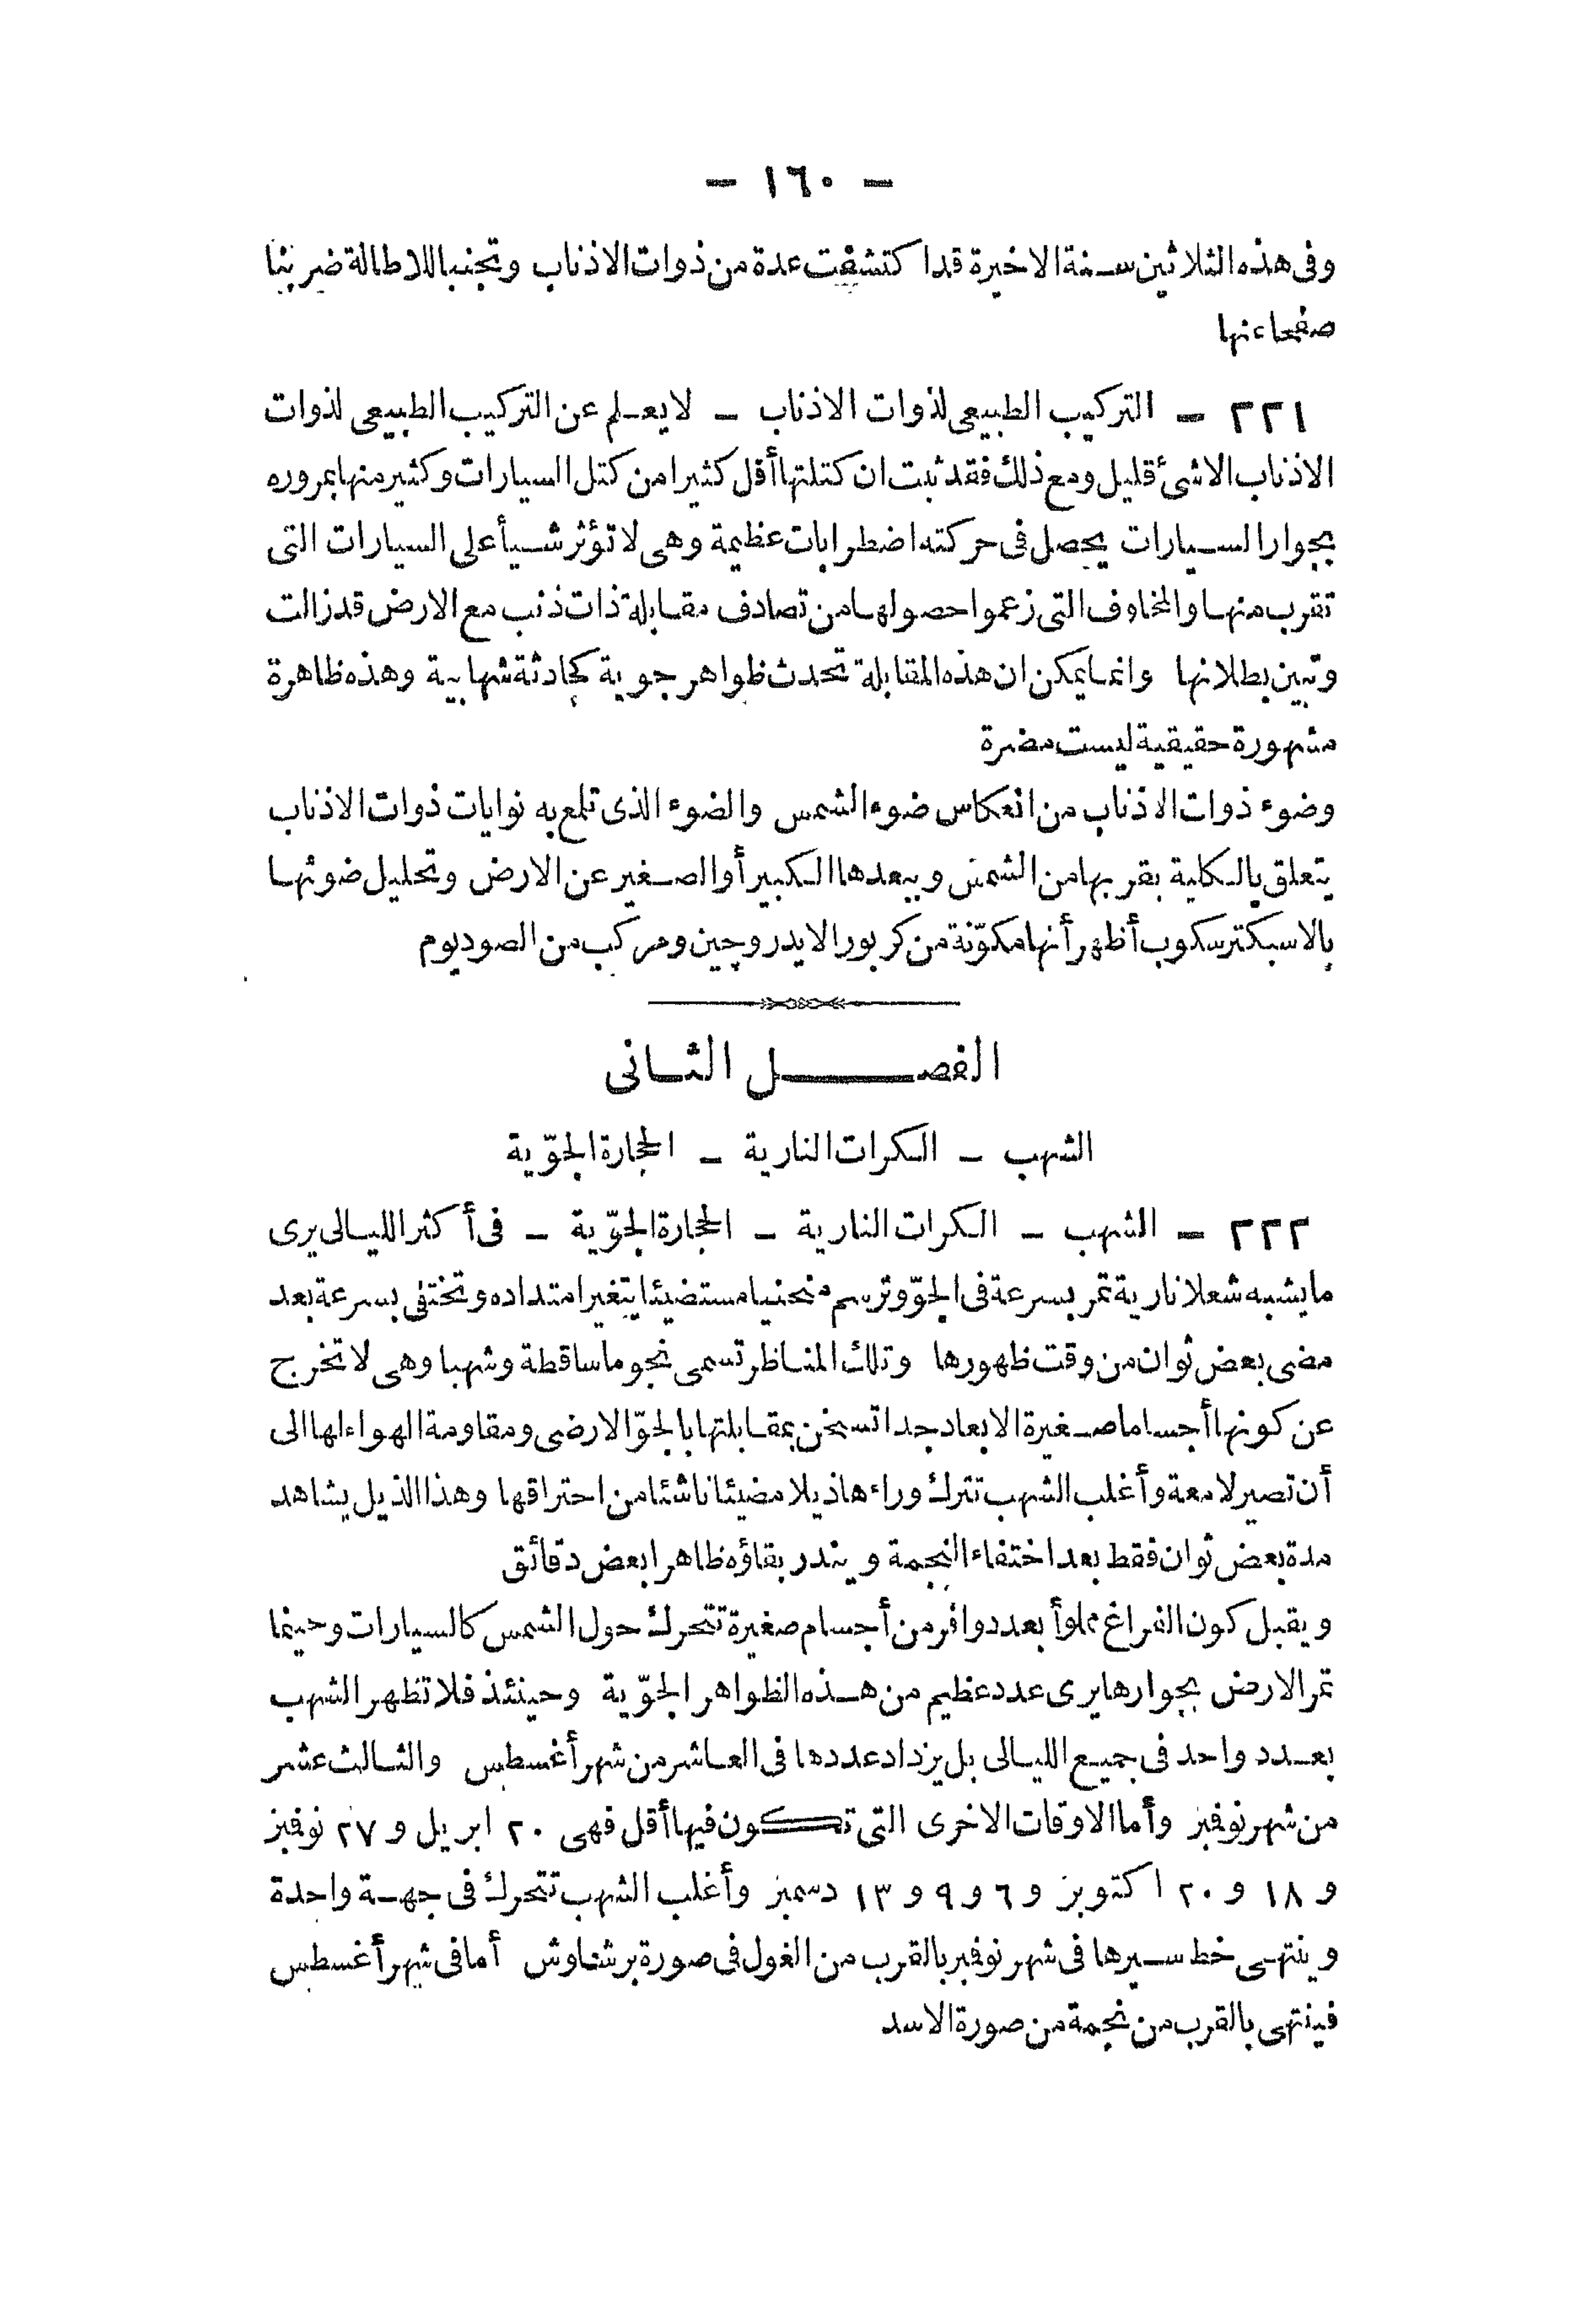 — ١٦٠ —
وفى هذه الثلاثين سنة الاخيرة قد اكتشفت عدة من ذوات الاذناب وتجنبا للاطالة ضربنا
صفحا عنها
٢٢١ — التركيب الطبيعى لذوات الاذناب — لا يعلم عن التركيب الطبيعى لذوات
الاذناب الا شئ قليل ومع ذلك فقد ثبت ان كتلتها أقل كثيرا من كتل السيارات وكثير منها بمروره
بجوار السيارات يحصل فى حركته اضطرابات عظيمة وهى لا تؤثر شيأ على السيارات التى
تقرب منها والمخاوف التى زعموا حصولها من تصادف مقابلة ذات ذنب مع الارض قد زالت
وتبين بطلانها وانما يمكن ان هذه المقابلة تحدث ظواهر جوية كحادثة شهابية وهذه ظاهرة
مشهورة حقيقية ليست مضرة
وضوء ذوات الاذناب من انعكاس ضوء الشمس والضوء الذى تلمع به نوايات ذوات الاذناب
يتعلق بالكلية بقربها من الشمس وببعدها الكبير أو الصغير عن الارض وتحليل ضوئها
بالاسبكترسكوب أظهر أنها مكوّنة من كربور الايدروجين ومركب من الصوديوم
الفصل الثانى
الشهب — الكرات النارية — الحجارة الجوّية
٢٢٢ — الشهب — الكرات النارية — الحجارة الجوّية — فى أكثر الليالى يرى
ما يشبه شعلا نارية تمر بسرعة فى الجوّ وترسم منحنيا مستضيئا يتغير امتداده وتختفى بسرعة بعد
مضى بعض ثوان من وقت ظهورها وتلك المناظر تسمى نجوما ساقطة وشهبا وهى لا تخرج
عن كونها أجساما صغيرة الابعاد جدا تسخن بمقابلتها بالجوّ الارضى ومقاومة الهواء لها الى
أن تصير لامعة وأغلب الشهب تترك وراءها ذيلا مضيئا ناشئا من احتراقها وهذا الذيل يشاهد
مدة بعض ثوان فقط بعد اختفاء النجمة ويندر بقاؤه ظاهرا بعض دقائق
ويقبل كون الفراغ مملوأ بعدد وافر من أجسام صغيرة تتحرك حول الشمس كالسيارات وحينما
تمر الارض بجوارها يرى عدد عظيم من هذه الظواهر الجوّية وحينئذ فلا تظهر الشهب
بعدد واحد فى جميع الليالى بل يزداد عددها فى العاشر من شهر أغسطس والثالث عشر
من شهر نوفمبر وأما الاوقات الاخرى التى تكون فيها أقل فهى ٢٠ ابريل و ٢٧ نوفمبر
و ١٨ و ٢٠ اكتوبر و ٦ و ٩ و ١٣ دسمبر وأغلب الشهب تتحرك فى جهة واحدة
وينتهى خط سيرها فى شهر نوفمبر بالقرب من الغول فى صورة برشاوش أما فى شهر أغسطس
فينتهى بالقرب من نجمة من صورة الاسد